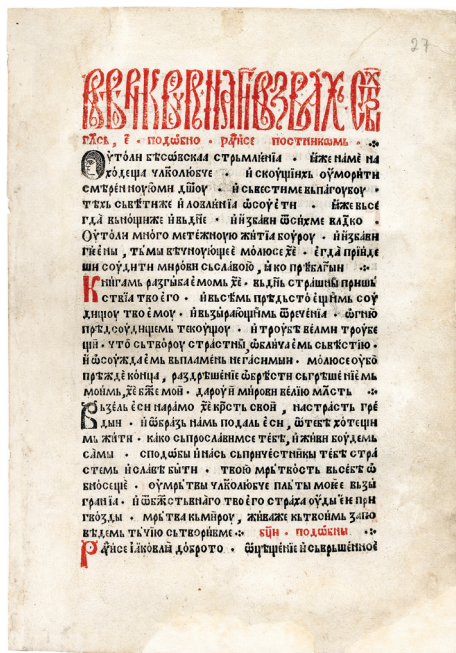 27
гл҃сь, е҃ · подѡбно · рꙋ҇ исе постникѡмь ·
Оутоли бѣсѡвскаа стрьмлѥнїа · иже на ме на
ходеща чл҃колюбче · и скоущїихь оуморити
смѣрен ноую ми дш҃оу · и сьвести ме вьпагоубоу ·
тѣхь сьвѣти҄е и ловлѥнїа ѿсоуети · иже вьсе
гда вьнощи же и вьдн҃е · и избави ѿ сихь ме вл҃дко
Оутоли много метежноую житїа боурoу · и избави
ги҄ены, тьмы вѣчноующее молюсе хе҃ · егда прїиде
ши соудити мирови сьславою, ꙗко прѣбл҃гыи
Книгамь разгыбаемомь хе҃ · вьдн҃ь страшны пришь
ствїа твоего · и вьсѣмь прѣдьстоещїимь соу
дищоу твоемоу · и вьзырающїимь ѿреченїа · ѡгню
прѣдсоудищемь текоущоу · и троубѣ велми троубе
щи · что сьтвороу страстны, ѡбличаемь сьвѣстїю ·
и ѡсоуждаемь вьпламень негасимыи · молюсе оубо
прѣжде конца, раздрѣшенїе ѡбрѣсти сьгрѣшенїемь
моимь, хе҃ бж҃е мои · дароуи мирови велїю мл҃сть
Вьзель еси на рамо хе҃ крс҃ть свои, на страсть гре
дыи · и ѡбразь намь подаль еси, ѿтебѣ хотещи
мь жити · како сьпрославимсе тебѣ, и живи боудемь
самы · сподобы и нась сьпричестникы тебѣ стра
стемь и славѣ быти · твою мрьтвость вьсебѣ ѡ
бносеще · оумрьтвы чл҃колюбче пльты моее вьзы
гранїа · и ѡбж҃ствьнаго твоего страха оуды ее при
гвозды · мрьтва кьмироу, жива же кьтвоимь запо
вѣдемь тьчїю сьтвори ме · бц҃ни · подѡбны ·
Рꙋ҇ исе іаковли доброто · ѡцѣщенїе и сьврьшенное